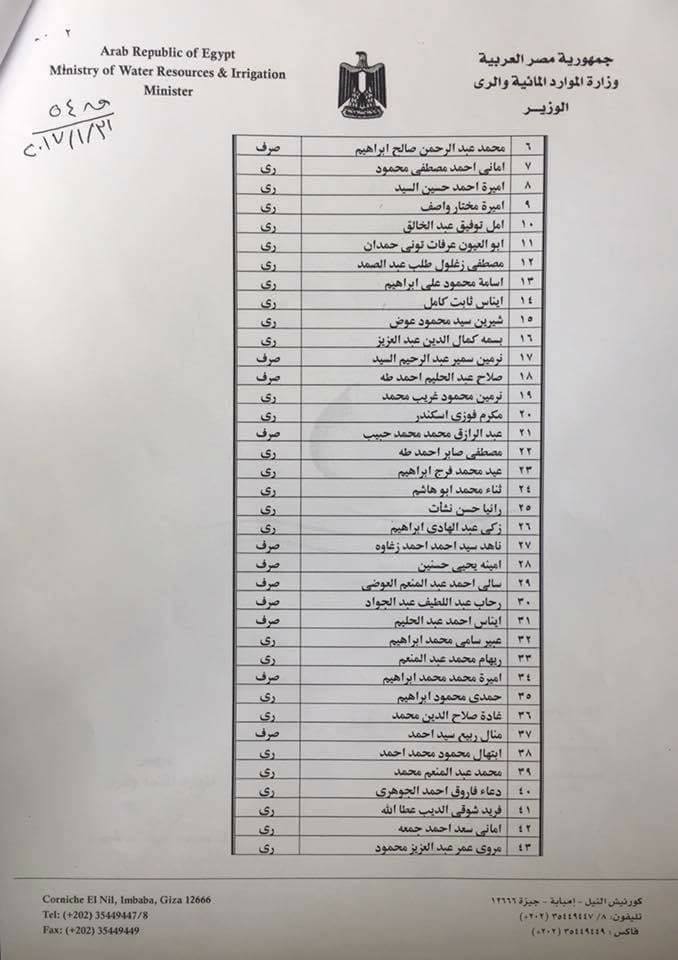 ٢
Arab Republic of Egypt
Ministry of Water Resources & Irrigation
Minister
جمهورية مصر العربية
وزارة الموارد المائية والرى
الوزير
٥٤٨٥
٢٠١٧/١/٣١
٦ محمد عبد الرحمن صالح ابراهيم صرف
٧ امانى احمد مصطفى محمود رى
٨ اميرة احمد حسين السيد رى
٩ اميرة مختار واصف رى
١٠ امل توفيق عبد الخالق رى
١١ ابو العيون عرفات تونى حمدان رى
١٢ مصطفى زغلول طلب عبد الصمد رى
١٣ اسامة محمود على ابراهيم رى
١٤ ايناس ثابت كامل رى
١٥ شيرين سيد محمود عوض رى
١٦ بسمه كمال الدين عبد العزيز رى
١٧ نرمين سمير عبد الرحيم السيد صرف
١٨ صلاح عبد الحليم احمد طه صرف
١٩ نرمين محمود غريب محمد رى
٢٠ مكرم فوزى اسكندر رى
٢١ عبد الرازق محمد محمد حبيب صرف
٢٢ مصطفى صابر احمد طه رى
٢٣ عيد محمد فرج ابراهيم رى
٢٤ ثناء محمد ابو هاشم رى
٢٥ رانيا حسن نشأت رى
٢٦ زكى عبد الهادى ابراهيم رى
٢٧ ناهد سيد احمد احمد زغاوه صرف
٢٨ امينه يحيى حسنين صرف
٢٩ سالى احمد عبد المنعم العوضى صرف
٣٠ رحاب عبد اللطيف عبد الجواد صرف
٣١ ايناس احمد عبد الحليم صرف
٣٢ عبير سامى محمد ابراهيم رى
٣٣ ريهام محمد عبد المنعم رى
٣٤ اميرة محمد محمد ابراهيم صرف
٣٥ حمدى محمود ابراهيم رى
٣٦ غادة صلاح الدين محمد رى
٣٧ منال ربيع سيد احمد صرف
٣٨ ابتهال محمود محمد احمد رى
٣٩ محمد عبد المنعم محمد رى
٤٠ دعاء فاروق احمد الجوهرى رى
٤١ فريد شوقى الديب عطا الله رى
٤٢ امانى سعد احمد جمعه رى
٤٣ مروى عمر عبد العزيز محمود رى
Corniche El Nil, Imbaba, Giza 12666
Tel: (+202) 35449447/8
Fax: (+202) 35449449
كورنيش النيل - إمبابة - جيزة ١٢٦٦٦
تليفون: ٨/ ٣٥٤٤٩٤٤٧ (٢٠٢+)
فاكس : ٣٥٤٤٩٤٤٩ (٢٠٢+)